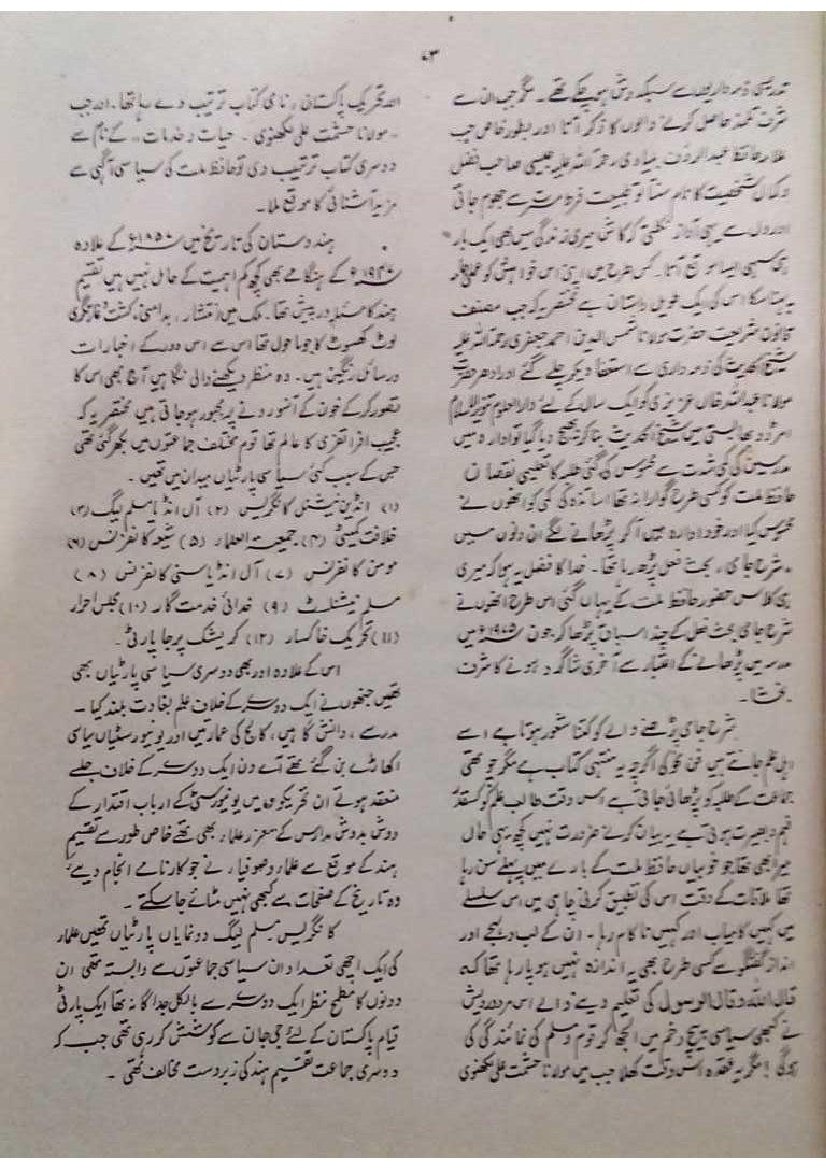 ۷۳
تدریسی ذمہ داریوں سے سبکدوش ہو چکے تھے۔ مگر جب ان سے
شرف تلمذ حاصل کرنے والوں کا ذکر آتا اور بطور خاص جب
علامہ حافظ عبد الرؤف بلیاوی رحمۃ اللہ علیہ جیسی صاحب فضل
و کمال شخصیت کا نام سنتا تو طبیعت فرط مسرت سے جھوم جاتی
اور دل سے یہی آواز نکلتی کہ کاش میری زندگی میں بھی ایک بار
ہی سہی ایسا موقع آتا۔ کس طرح میں اپنی اس خواہش کو عملی جامہ
پہنا سکا اس کی ایک طویل داستان ہے مختصر یہ کہ جب مصنف
قانون شریعت حضرت مولانا شمس الدین احمد جعفری رحمۃ اللہ علیہ
شیخ الحدیث کی ذمہ داری سے استعفا دیکر چلے گئے اور ادھر حضرت
مولانا عبد اللہ خاں عزیزی کو ایک سال کے لئے دارالعلوم تنویر الاسلام
امرڈوبھا بستی میں شیخ الحدیث بنا کر بھیج دیا گیا تو ادارہ میں
مدرسین کی کمی شدت سے محسوس کی گئی طلبہ کا تعلیمی نقصان
حافظ ملت کو کسی طرح گوارا نہ تھا اساتذہ کی کمی کو انھوں نے
محسوس کیا اور خود ادارہ میں آ کر پڑھانے لگے ان دنوں میں
شرح جامی، بحث فعل پڑھ رہا تھا۔ خدا کا فضل یہ ہوا کہ میری
ہی کلاس حضور حافظ ملت کے یہاں گئی اس طرح انھوں نے
شرح جامی بحث فعل کے چند اسباق پڑھا کر جون ۱۹۷۵ء میں
مدرسہ میں پڑھانے کے اعتبار سے آخری شاگرد ہونے کا شرف
بخشا۔
شرح جامی پڑھنے والے کو کتنا شعور ہوتا ہے اسے
اہل علم جانتے ہیں فن نحو کی اگرچہ یہ منتہی کتاب ہے مگر جو تھی
جماعت کے طلبہ کو پڑھائی جاتی ہے اس وقت طالب علم کو کس قدر
فہم و بصیرت ہوتی ہے یہ بیان کرنے ضرورت نہیں کچھ یہی حال
میرا بھی تھا جو خوبیاں حافظ ملت کے بارے میں پہلے سن رہا
تھا ملاقات کے وقت اس کی تطبیق کرنی چاہی میں اس سلسلے
میں کہیں کامیاب اور کہیں ناکام رہا۔ ان کے لب و لہجے اور
انداز گفتگو سے کسی طرح بھی یہ اندازہ نہیں ہو پا رہا تھا کہ
قال اللہ وقال الرسول کی تعلیم دینے والے اس مرد درویش
نے کبھی سیاسی پیچ و خم میں الجھ کر قوم و مسلم کی نمائندگی کی
ہوگی! مگر یہ عقدہ اس وقت کھلا جب میں مولانا حشمت علی لکھنوی
اور تحریک پاکستان، نامی کتاب ترتیب دے رہا تھا۔ اور جب
مولانا حشمت علی لکھنوی۔ حیات و خدمات،، کے نام سے
دوسری کتاب ترتیب دی تو حافظ ملت کی سیاسی آگہی سے
مزید آشنائی کا موقع ملا۔
ہندوستان کی تاریخ میں ۱۸۵۷ء کے علاوہ
۱۹۴۷ء کے ہنگامے بھی کچھ کم اہمیت کے حامل نہیں ہیں تقسیم
ہند کا مسئلہ درپیش تھا۔ ملک میں انتشار، بدامنی، کشت و غارتگری
لوٹ کھسوٹ کا جو ماحول تھا اس سے اس دور کے اخبارات
و رسائل رنگین ہیں۔ وہ منظر دیکھنے والی نگاہیں آج بھی اس کا
تصور کر کے خون کے آنسو رونے پر مجبور ہو جاتی ہیں مختصر یہ کہ
عجیب افراتفری کا عالم تھا قوم مختلف جماعتوں میں بکھر گئی تھی
جس کے سبب کئی سیاسی پارٹیاں میدان میں تھیں۔
(۱) انڈین نیشنل کانگریس (۲) آل انڈیا مسلم لیگ (۳)
خلافت کمیٹی (۴) جمعیۃ العلماء (۵) شیعہ کانفرنس (۶)
مومن کانفرنس (۷) آل انڈیا سنی کانفرنس (۸)
مسلم نیشنلسٹ (۹) خدائی خدمت گار (۱۰) مجلس احرار
(۱۱) تحریک خاکسار (۱۲) کریشک پرجا پارٹی۔
اس کے علاوہ اور بھی دوسری سیاسی پارٹیاں بھی
تھیں جنھوں نے ایک دوسرے کے خلاف علم بغاوت بلند کیا۔
مدرسے، دانش گاہیں، کالج کی عمارتیں اور یونیورسٹیاں سیاسی
اکھاڑے بن گئے تھے آئے دن ایک دوسرے کے خلاف جلسے
منعقد ہوتے ان تحریکوں میں یونیورسٹی کے ارباب اقتدار کے
دوش بدوش مدارس کے معزز علماء بھی تھے خاص طور سے تقسیم
ہند کے موقع سے علماء و صوفیاء نے جو کارنامے انجام دیئے
وہ تاریخ کے صفحات سے کبھی نہیں مٹائے جا سکتے۔
کانگریس مسلم لیگ دو نمایاں پارٹیاں تھیں علماء
کی ایک اچھی تعداد ان سیاسی جماعتوں سے وابستہ تھی ان
دونوں کا مطمح نظر ایک دوسرے سے بالکل جداگانہ تھا ایک پارٹی
قیام پاکستان کے لئے جی جان سے کوشش کر رہی تھی جب کہ
دوسری جماعت تقسیم ہند کی زبردست مخالف تھی۔